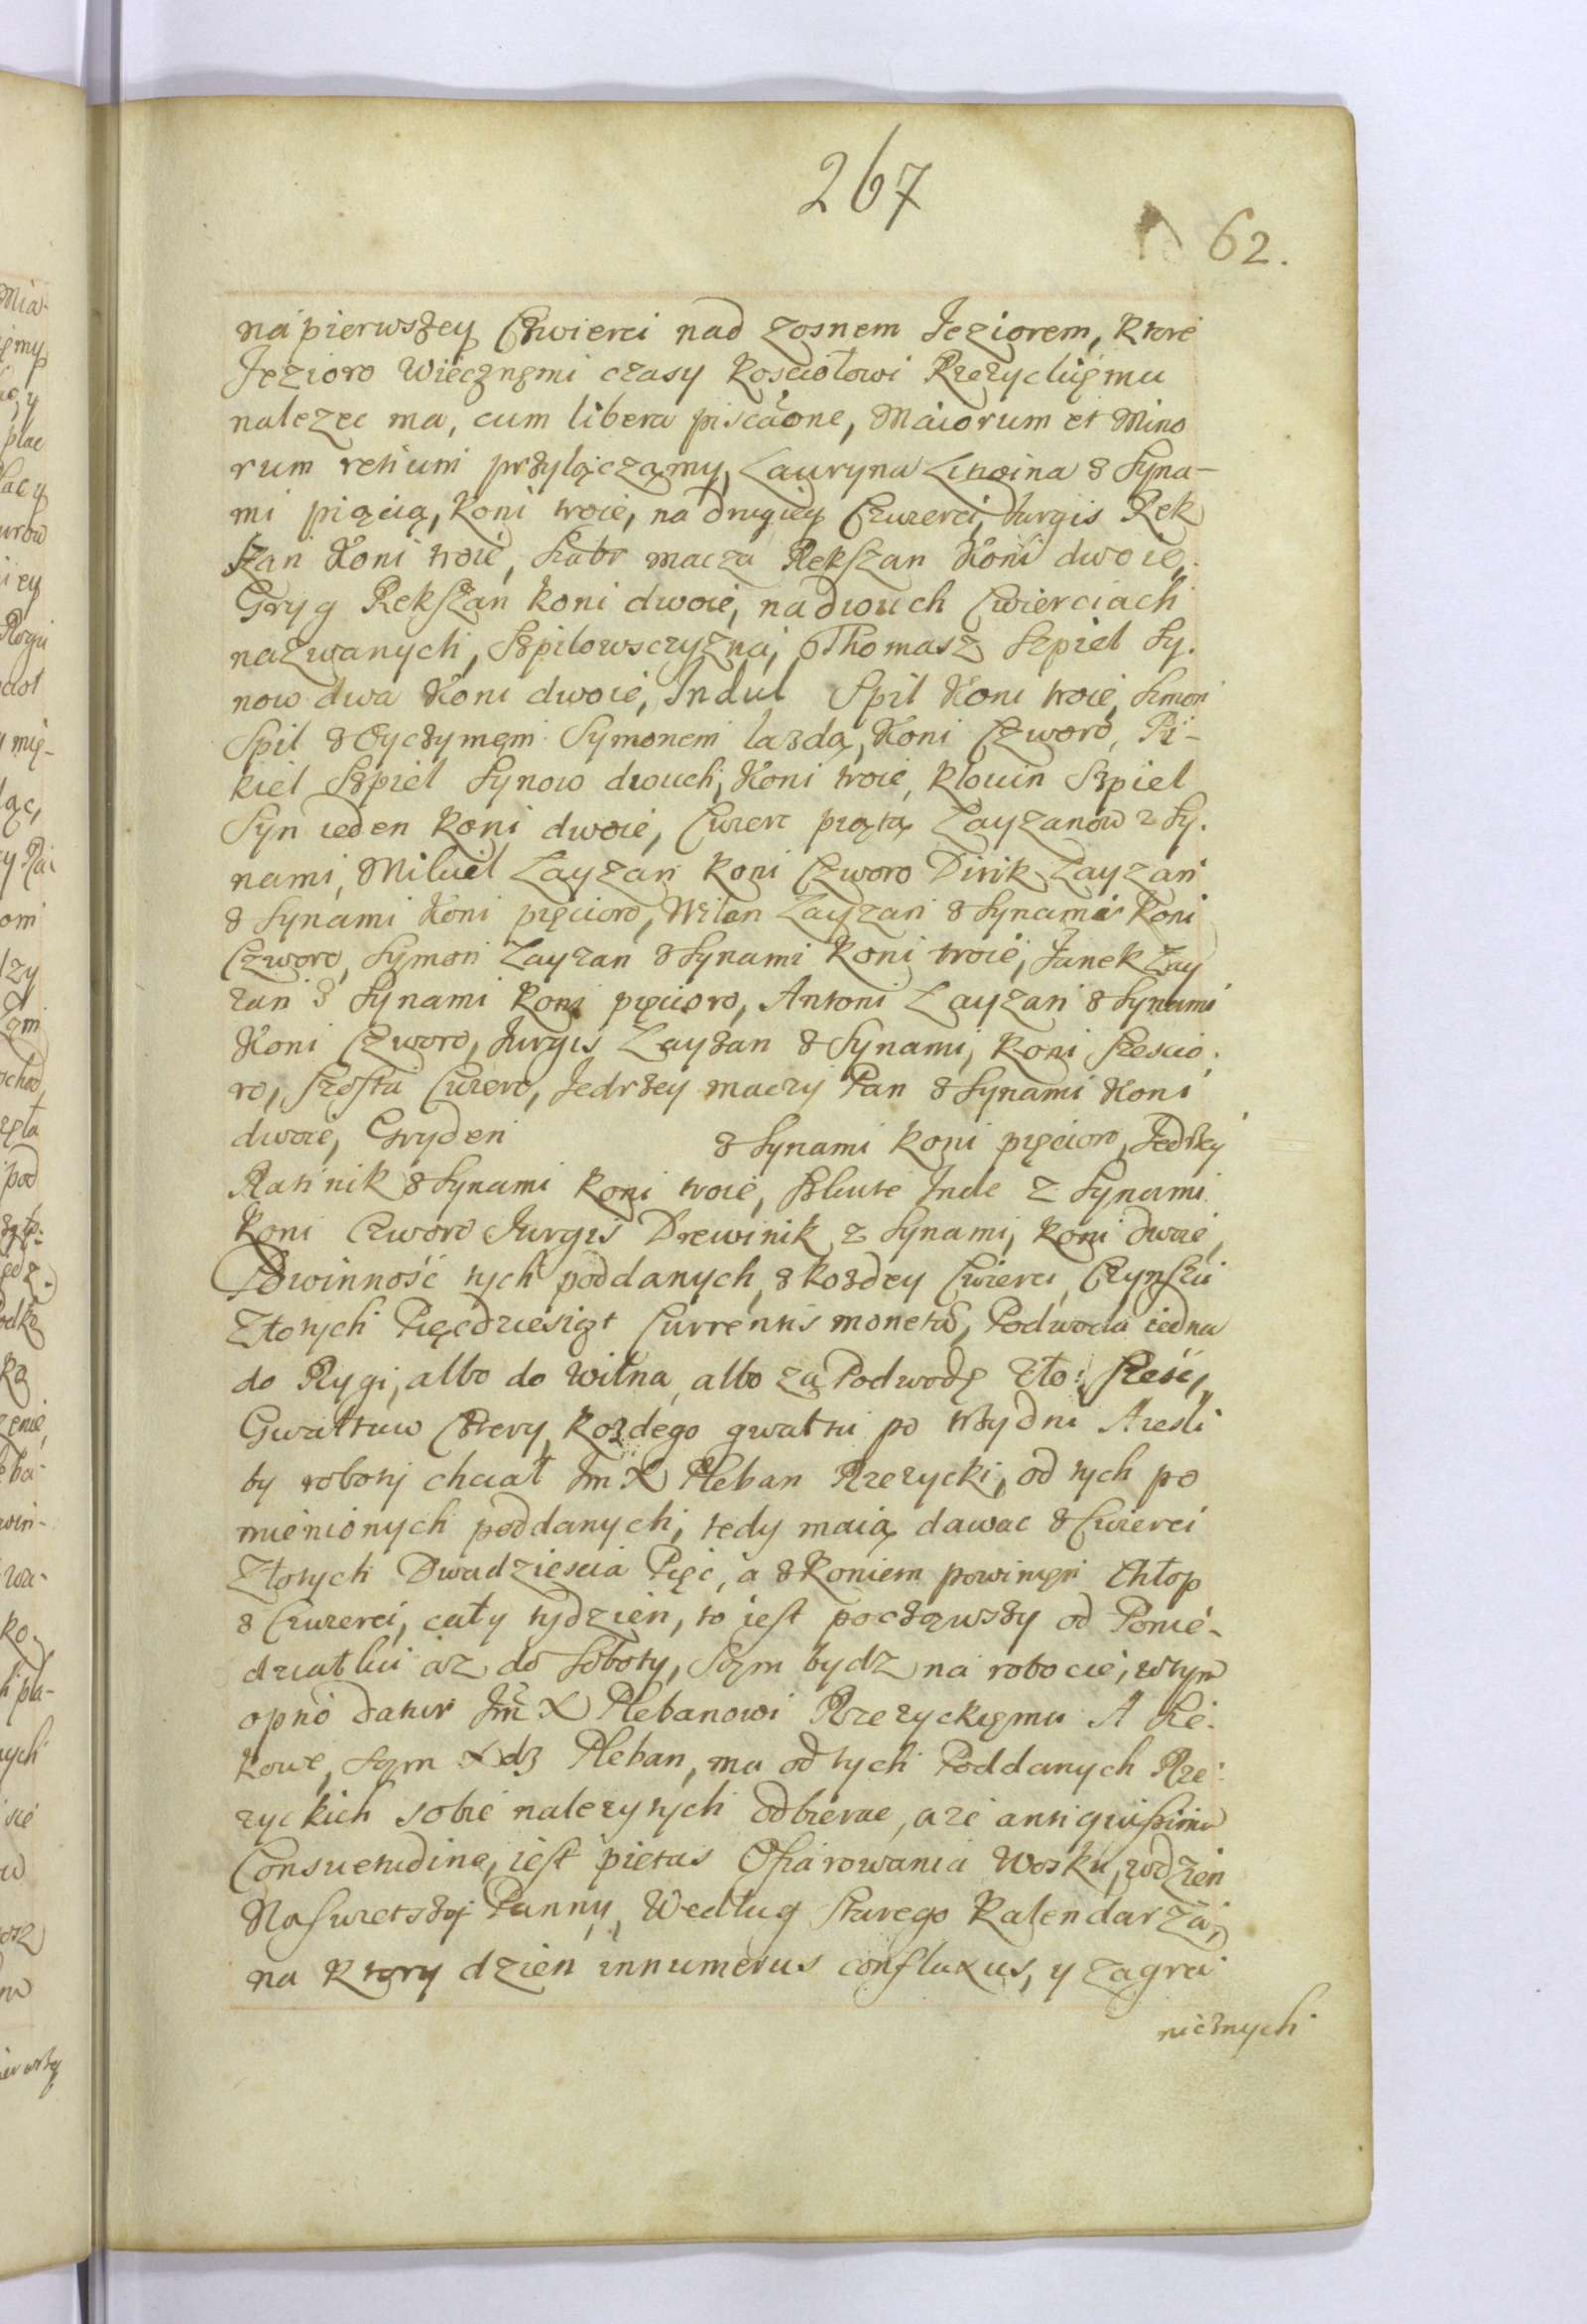 267
62.
na pierwszey Czwierci nad Zosnem Jeziorem, ktore
Jezioro Wiecznemi czasy Kosciołowi Rzezyckiemu
nalezec ma, cum libera piscaone, Maiorum et Mino
rum retium przyłączamy, Lauryna Linoina z Syna-
mi piącią, koni troie, na drugiey Czwierci, Jurgis Rek
szan Koni troie, Kabr macza Rekszan Koni dwoie,
Gryg Rekszan koni dwoie, na dwuch Cwierciach
nazwanych, Szpilowsczyzna, Thomasz Szpiel Sy.
now dwa Koni dwoie, Indul Spil Koni troie, Simon
Spil z Oyczymem Symonem lazda, Koni Czworo, Pi-
kiel Szpiel Synow dwuch, Koni troie, Klowin Szpiel
Syn ieden koni dwoie, Cwierc piąta Zayzanow z Sy.
nami, Mikiel Zayzan koni Czworo Dirik Zayzan
z Synami Koni pięcioro, Wilan Zayzan z Synami Koni
Czworo, Symon Zayzan z Synami koni troie, Janek Zay
zan z Synami koni pięcioro, Antoni Zayzan z Synami
Koni Czworo, Jurgis Zayzan z Synami, koni szescio.
ro, szosta Cwierc, Jedrzey maczy Pan z Synami Koni
dwoie, Gryden z Synami koni pięcioro, Jedrzey
Ratinik z Synami koni troie, Inde z Synami
koni Czworo Jurgis Drewinik z Synami, koni dwoie,
Powinność tych poddanych, z kozdey Cwierci, Czynszu
Złotych Pięcdziesiąt Currentis moneta, Podwoda iedna
do Rygi, albo do Wilna, albo za Podwodę Zło: szesc,
Gwałtuw Cztery, kozdego gwałtu po trzy dni A iesli
by roboty chciał Jm X Pleban Rzezycki, od tych po
mienionych poddanych, tedy maią dawac z Cwierci
Złotych Dwadziescia Pięc, a z koniem powinien Chłop
z Czwierci, cały tydzien, to iest począwszy od Ponie-
działku az do Soboty, Sam bydz na robocie, w tym
opno datur Jm X Plebanowi Rzezyckiemu A Le-
kowe, Sam Xdz Pleban, ma od tych Poddanych Rze-
zyckich sobie nalezytych odbierac, a ze antiquissima
Consuetudine, iest pietas Ofiarowania Wosku, w dzien
Naswietszej Panny, Według Starego Kalendarza,
na ktory dzien innumerus confluxus, y zagra
nicznych